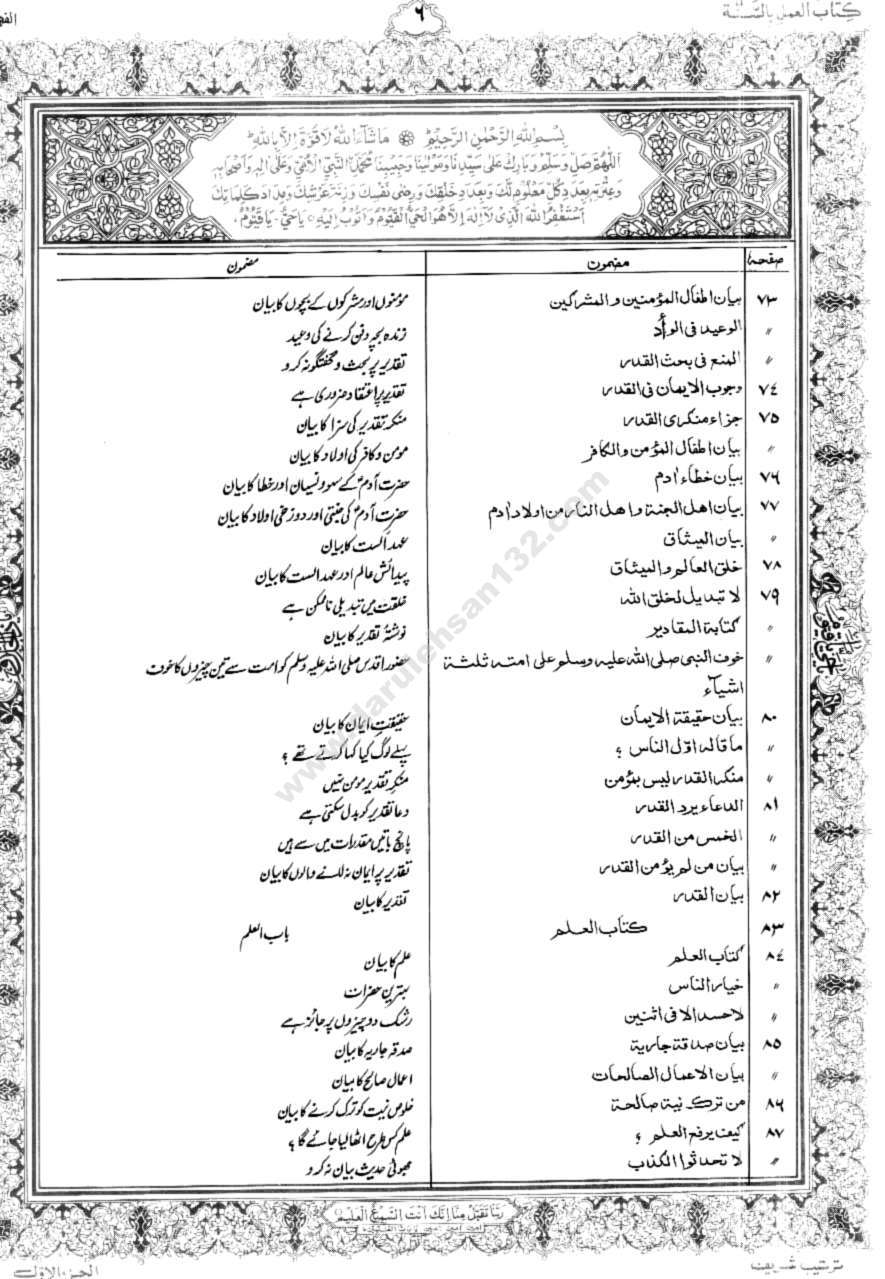 كتاب العمل بالسنة
٦
بسم الله الرحمن الرحيم ماشاء الله لا قوة الا بالله
اللهم صل وسلم وبارك على سيدنا ومولانا وحبيبنا محمد النبي الامي وعلى اله واصحابه
وعترته بعدد كل معلوم لك وبعدد خلقك ورضى نفسك وزنة عرشك ومداد كلماتك
استغفر الله الذي لا اله الا هو الحي القيوم واتوب اليه ياحي ياقيوم
صفحہ مضمون مضمون
٧٣ بيان اطفال المؤمنين والمشركين مؤمنوں اور مشرکوں کے بچوں کا بیان
〃 الوعيد فى الوأد زندہ بچہ دفن کرنے کی وعید
〃 المنع فى بحث القدر تقدیر پر بحث و گفتگو نہ کرو
٧٤ وجوب الايمان فى القدر تقدیر پر اعتقاد ضروری ہے
٧٥ جزاء منكرى القدر منکر تقدیر کی سزا کا بیان
〃 بيان اطفال المؤمن والكافر مومن و کافر کی اولاد کا بیان
٧٦ بيان خطاء ادم حضرت آدمؑ کے سہو و نسیان اور خطا کا بیان
٧٧ بيان اهل الجنة واهل النار من اولاد ادم حضرت آدمؑ کی جنتی اور دوزخی اولاد کا بیان
〃 بيان الميثاق عہد الست کا بیان
٧٨ خلق العالم والميثاق پیدائش عالم اور عہد الست کا بیان
٧٩ لا تبديل لخلق الله خلقت میں تبدیلی ناممکن ہے
〃 كتابة المقادير نوشتۂ تقدیر کا بیان
〃 خوف النبى صلى الله عليه وسلم على امته ثلثة حضور اقدس صلی اللہ علیہ وسلم کو امت سے تین چیزوں کا خوف
اشيآء
٨٠ بيان حقيقة الايمان حقیقت ایمان کا بیان
〃 ما قاله اوّل الناس ؟ پہلے لوگ کیا کہا کرتے تھے ؟
〃 منكر القدر ليس بمؤمن منکر تقدیر مومن نہیں
٨١ الدعاء يرد القدر دعا تقدیر کو بدل سکتی ہے
〃 الخمس من القدر پانچ باتیں مقدرات میں سے ہیں
〃 بيان من لم يؤمن القدر تقدیر پر ایمان نہ لانے والوں کا بیان
٨٢ بيان القدر تقدیر کا بیان
٨٣ كتاب العلم باب العلم
٨٤ كتاب العلم علم کا بیان
〃 خيار الناس بہترین حضرات
〃 لاحسد الا فى اثنين رشک دو چیزوں پر جائز ہے
٨٥ بيان صدقة جارية صدقہ جاریہ کا بیان
〃 بيان الاعمال الصالحات اعمال صالح کا بیان
٨٦ من ترك نية صالحة خلوص نیت کو ترک کرنے کا بیان
٨٧ كيف يرفع العلم ؟ علم کس طرح اٹھالیا جائے گا ؟
〃 لا تحدثوا الكذب جھوٹی حدیث بیان نہ کرو
www.darulehsan132.com
ربنا تقبل منا انك انت السميع العليم
ترتيب شريف
الجزء الاول